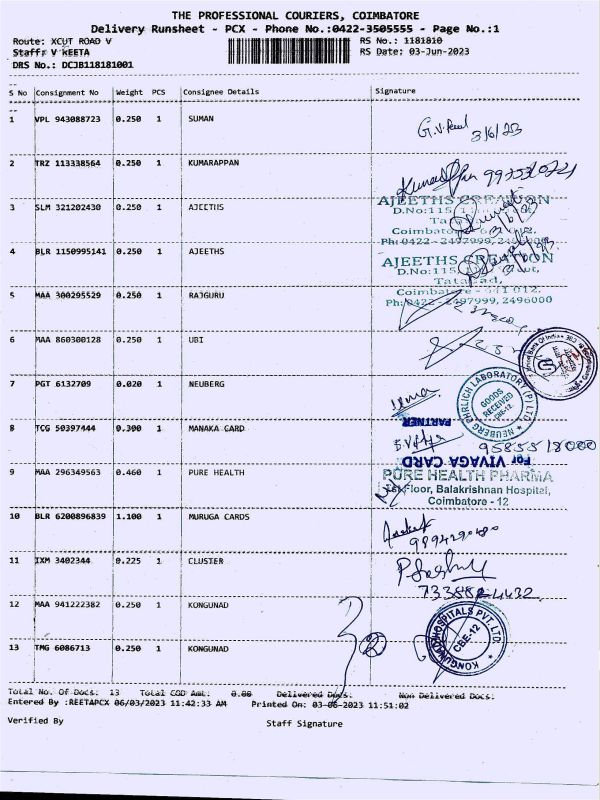 THE PROFESSIONAL COURIERS, COIMBATORE
Delivery Runsheet - PCX - Phone No.:0422-3505555 - Page No.:1
Route: XCUT ROAD V RS No.: 1181810
Staff: V REETA RS Date: 03-Jun-2023
DRS No.: DCJB118181001
S No Consignment No Weight PCS Consignee Details Signature
1 VPL 943088723 0.250 1 SUMAN
3/6/23
2 TRZ 113338564 0.250 1 KUMARAPPAN
3 SLM 321202430 0.250 1 AJEETHS
AJEETHS CREATION
D.No:115,
Coimbatore
Ph: 0422 - 2497999, 2496000
4 BLR 1150995141 0.250 1 AJEETHS
AJEETHS CREATION
D.No:115,
Tatabad,
Coimbatore - 641 012.
Ph: 0422 - 2497999, 2496000
5 MAA 300295529 0.250 1 RAJGURU
6 MAA 860300128 0.250 1 UBI
7 PGT 6132709 0.020 1 NEUBERG
NEUBERG EHRLICH LABORATORY (P) LTD
GOODS
RECEIVED
CBE-12
PARTNER
8 TCG 50397444 0.300 1 MANAKA CARD
9585518000
For VIVAGA CARD
9 MAA 296349563 0.460 1 PURE HEALTH
PURE HEALTH PHARMA
1st Floor, Balakrishnan Hospital,
Coimbatore - 12
10 BLR 6200896839 1.100 1 MURUGA CARDS
11 IXM 3402344 0.225 1 CLUSTER
12 MAA 941222382 0.250 1 KONGUNAD
KONGUNAD HOSPITALS PVT LTD
CBE-12
2
13 TMG 6086713 0.250 1 KONGUNAD
Total No. Of Docs: 13 Total COD Amt: 0.00 Delivered Docs: Non Delivered Docs:
Entered By :REETAPCX 06/03/2023 11:42:33 AM Printed On: 03-06-2023 11:51:02
Verified By Staff Signature